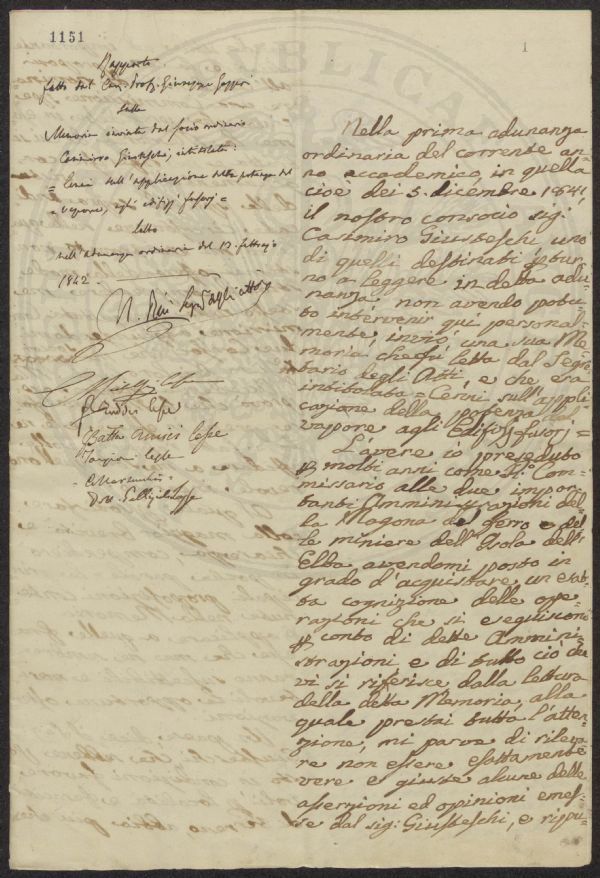 1151
1
Rapporto
fatto dal Cav. Prof. Giuseppe Gazzeri
sulla
Memoria inviata dal socio ordinario
Casimirro Giusteschi, intitolata:
= Cenni sull'applicazione della potenza del
vapore, agli edifizj fusorj =
Letto
nell'adunanza ordinaria del 13. febbrajo
1842.
Nella prima adunanza
ordinaria del corrente an-
no accademico, in quella
cioè dei 5. dicembre 1841,
il nostro consocio sig:
Casimiro Giusteschi uno
di quelli destinati p turn-
no a leggere in detta adu-
nanza, non avendo potu-
to intervenir qui personal-
mente, inviò una sua Me-
moria che fù letta dal Segre-
tario degli Atti, e che era
intitolata = Cenni sull'appli-
cazione della potenza del
vapore agli Edifizj fusorj =
L'avere io preseduto
p molti anni come R.o Com-
missario alle due impor-
tanti Amministrazioni del-
la Magona del ferro e del-
le miniere dell'Isola dell'
Elba, avendomi posto in
grado d'acquistare un esat-
ta cognizione delle ope-
razioni che si eseguiscono
p conto di dette Ammini-
strazioni e di tutto ciò che
vi si riferisce, dalla lettura
della detta Memoria, alla
quale prestai tutta l'atten-
zione, mi parve di rileva-
re non essere esattamente
vere e giuste alcune delle
asserzioni ed opinioni emes-
se dal sig: Giusteschi, e ripu-